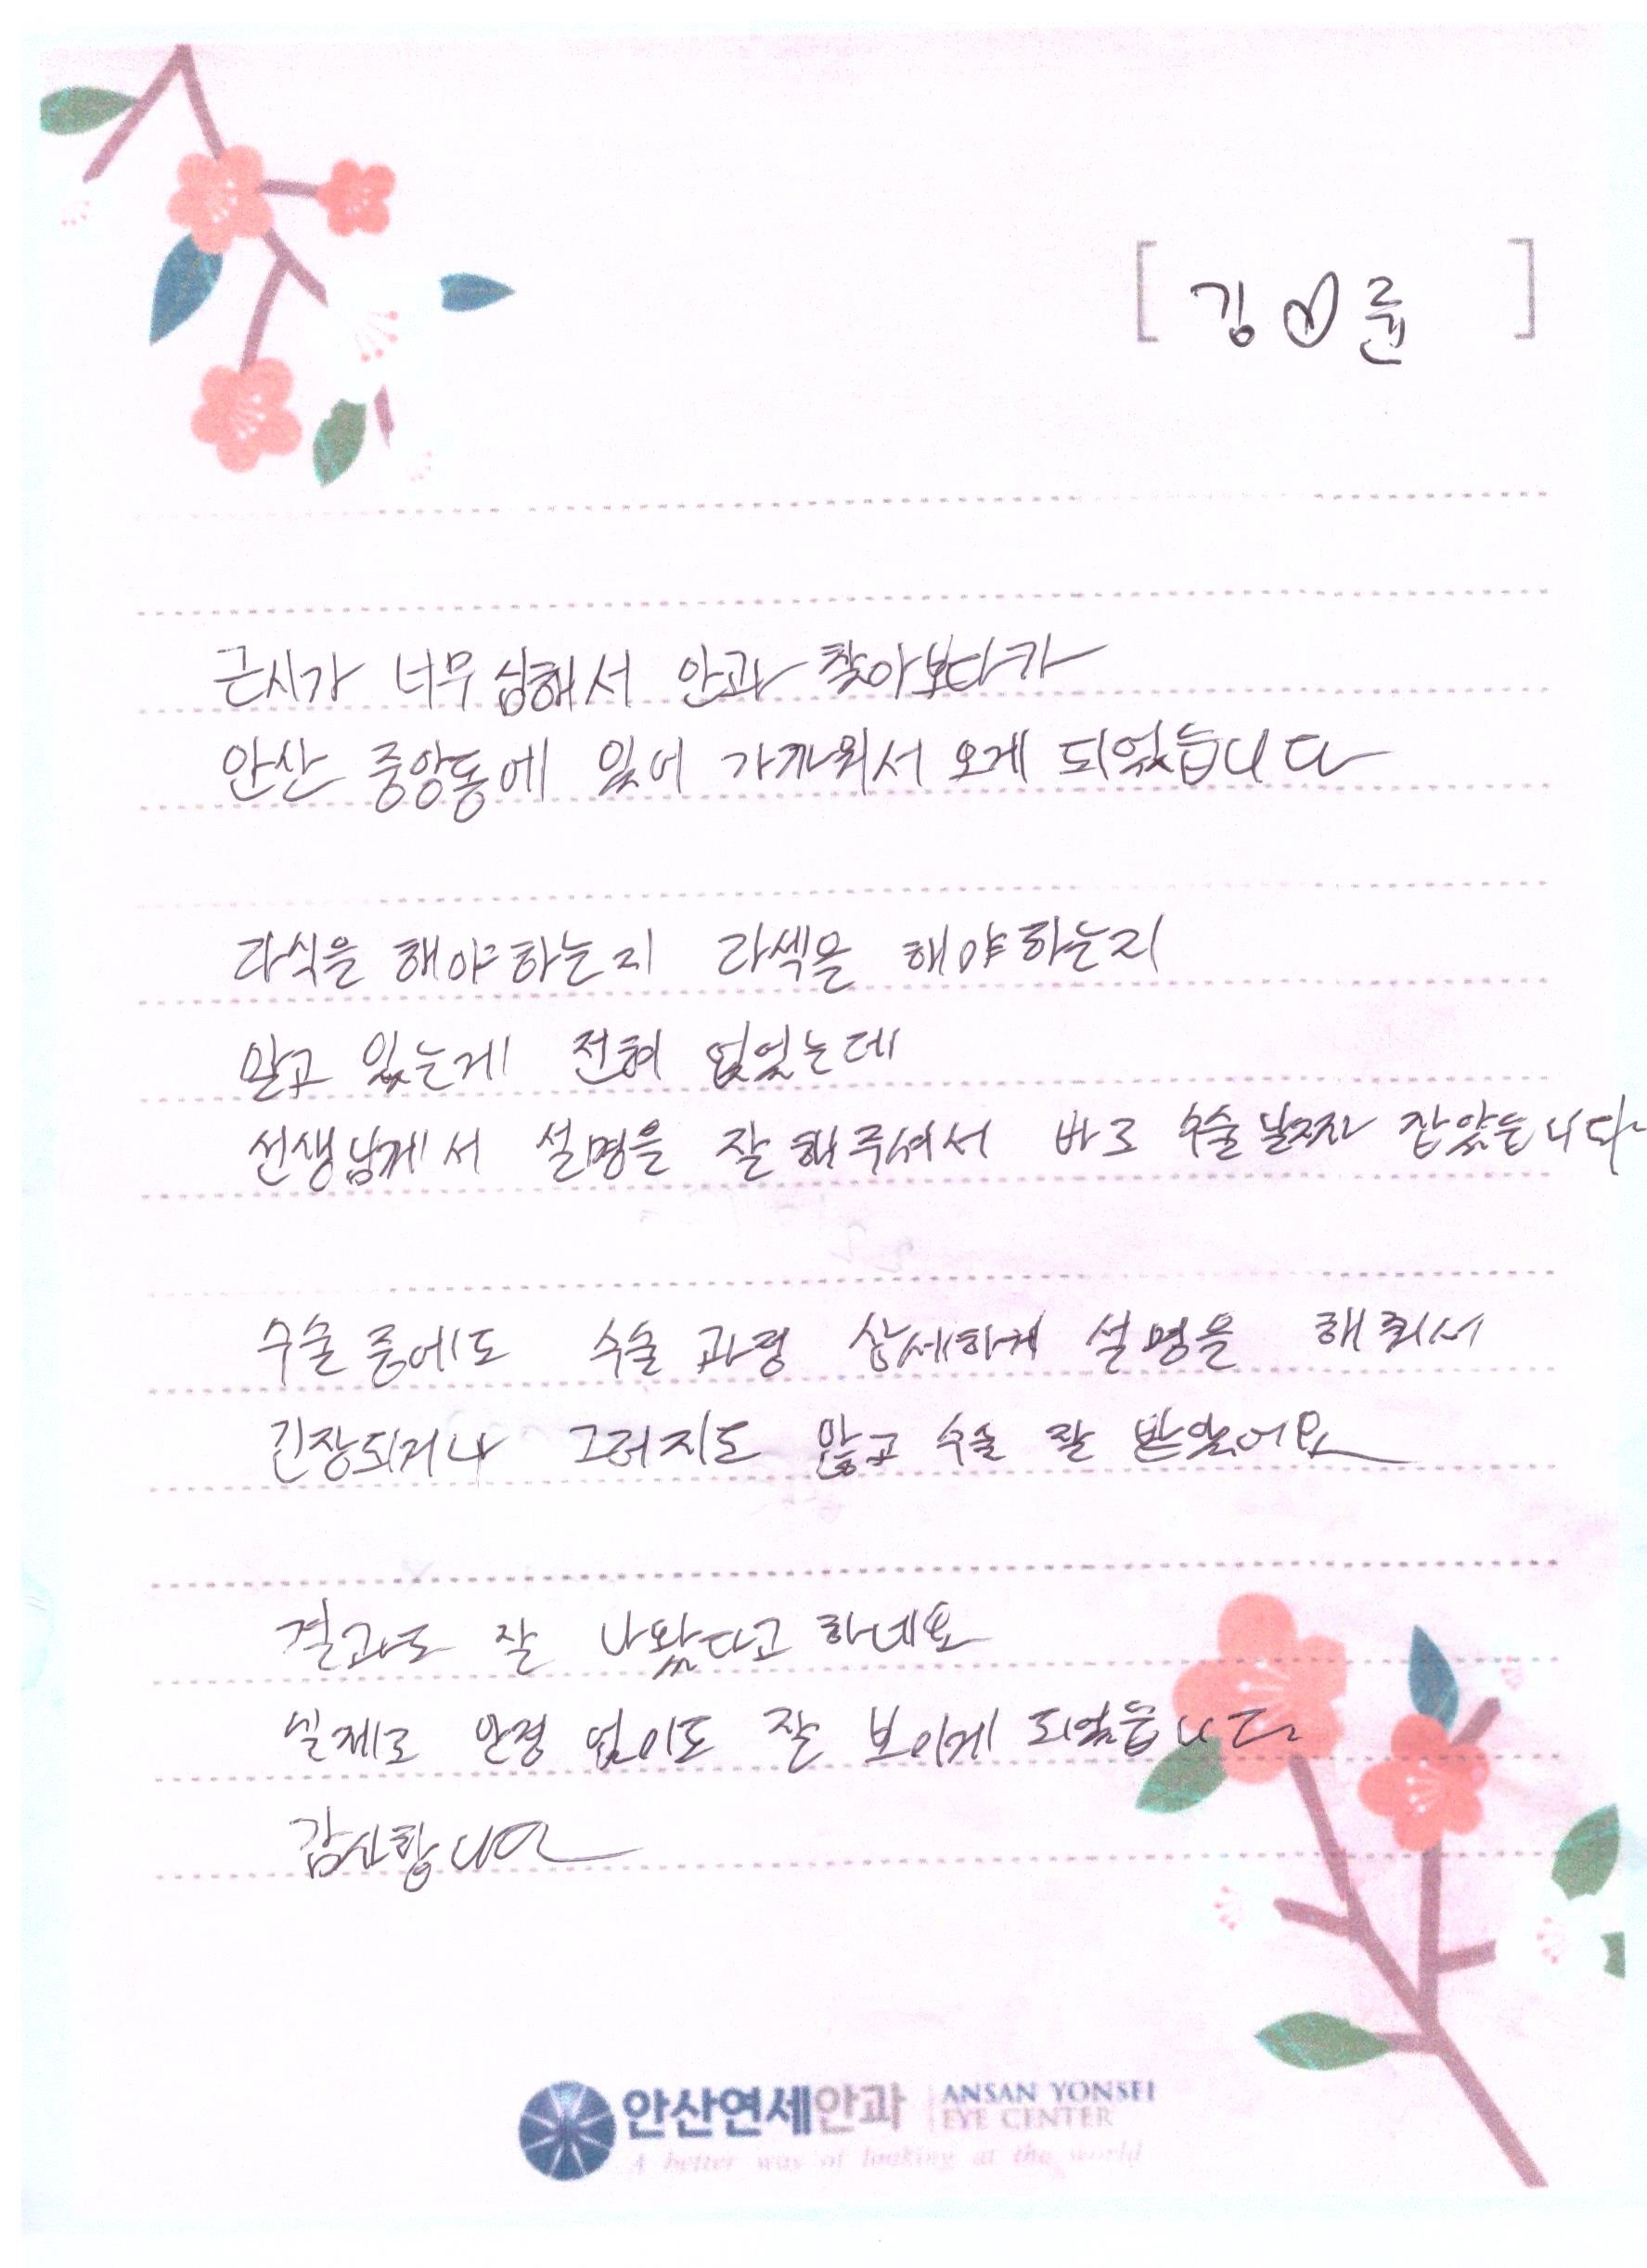 [ 김♡륜 ]
근시가 너무 심해서 안과 찾아보다가
안산 중앙동에 있어 가까워서 오게 되었습니다
라식을 해야하는지 라섹을 해야하는지
알고 있는게 전혀 없었는데
선생님께서 설명을 잘 해주셔서 바로 수술날짜 잡았습니다
수술 중에도 수술 과정 상세하게 설명을 해줘서
긴장되거나 그러지도 않고 수술 잘 받았어요
결과도 잘 나왔다고 하네요
실제로 안경 없이도 잘 보이게 되었습니다
감사합니다
안산연세안과 ANSAN YONSEI
EYE CENTER
A better way of looking at the world